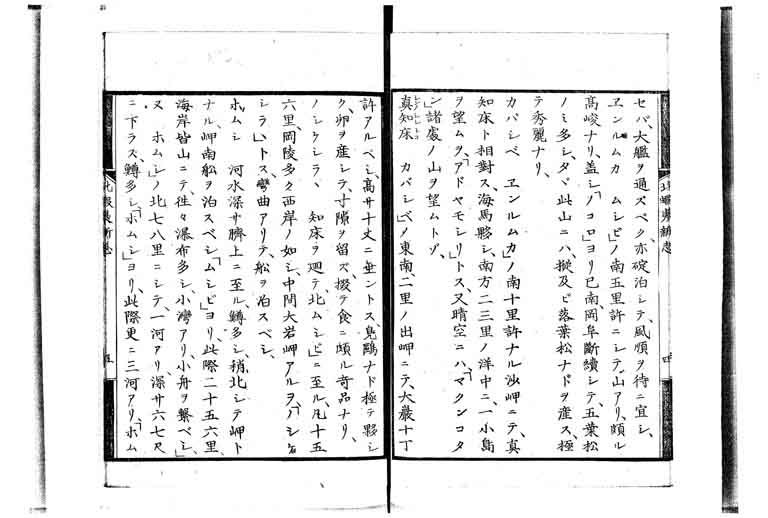 セバ、大艦ヲ通スベク、亦碇泊シテ、風順ヲ待ニ宜シ、
ヱンルムカ ムシビノ南五里許ニシテ、山アリ、頗ル
高峻ナリ、蓋シ「ノコロ」ヨリ已南、岡阜断續シテ、五葉松
ノミ多シ、タヾ此山ニハ、樅及ビ落葉松ナドヲ産ス、極
テ秀麗ナリ、
カバシベ ヱンルムカノ南十里許ナル沙岬ニテ、真
知床ト相對ス、海馬夥シ、南方二三里ノ洋中ニ、一小島
ヲ望ム、「アドヤモシリ」トス、又晴空ニハ、「マクンコタ
ン」諸處ノ山ヲ望ムトゾ、
真知床 カバシベノ東南、二里ノ出岬ニテ、大巌十丁
許アルベシ、高サ十丈ニ垂ントス、鳬鷗ナド極テ夥シ
ク、卵ヲ産シテ寸隙ヲ留ズ、掇テ食ニ頗ル奇品ナリ、
ノシケシラヽ 知床ヲ廻テ北ムシビニ至ル、凡十五
六里、岡陵多ク西岸ノ如シ、中間大岩岬アルヲ、「ノシケ
シラヽ」トス、彎曲アリテ、船ヲ泊スベシ、
ホムシ 河水深サ臍上ニ至ル、鱒多シ、稍北シテ岬ト
ナル、岬南船ヲ泊スベシ、「ムシビ」ヨリ、此際二十五六里、
海岸皆山ニテ、往々瀑布多シ、小灣アリ、小舟ヲ繋ベシ、
又 ホムシノ北七八里ニシテ一河アリ深サ六七尺
ニ下ラズ、鱒多シ、「ホムシ」ヨリ、此際更ニ三河アリ、「ホム
北蝦夷新志
四
北蝦夷新志
五